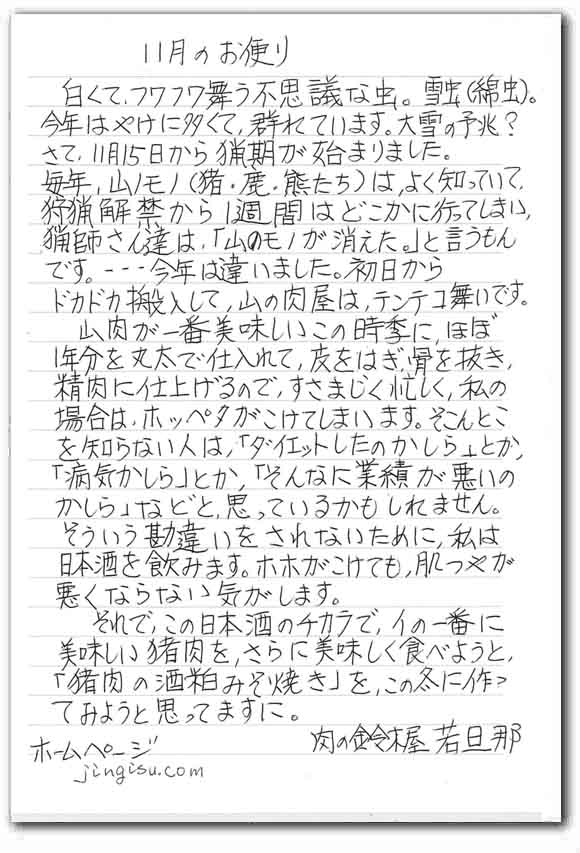 11月のお便り
白くて、フワフワ舞う不思議な虫。雪虫(綿虫)。
今年はやけに多くて、群れています。大雪の予兆？
さて、11月15日から猟期が始まりました。
毎年、山ノモノ(猪・鹿・熊たち)は、よく知っていて、
狩猟解禁から1週間はどこかに行ってしまい、
猟師さん達は、「山のモノが消えた。」と言うもん
です。---今年は違いました。初日から
ドカドカ搬入して、山の肉屋は、テンテコ舞いです。
山肉が一番美味しいこの時季に、ほぼ
1年分を丸太で仕入れて、皮をはぎ、骨を抜き、
精肉に仕上げるので、すさまじく忙しく、私の
場合は、ホッペタがこけてしまいます。そこんとこ
を知らない人は、「ダイエットしたのかしら」とか、
「病気かしら」とか、「そんなに業績が悪いの
かしら」などと、思っているかもしれません。
そういう勘違いをされないために、私は
日本酒を飲みます。ホホがこけても、肌つやが
悪くならない気がします。
それで、この日本酒のチカラで、イの一番に
美味しい猪肉を、さらに美味しく食べようと、
「猪肉の酒粕みそ焼き」を、この冬に作っ
てみようと思ってますに。
肉の鈴木屋 若旦那
ホームページ
jingisu.com